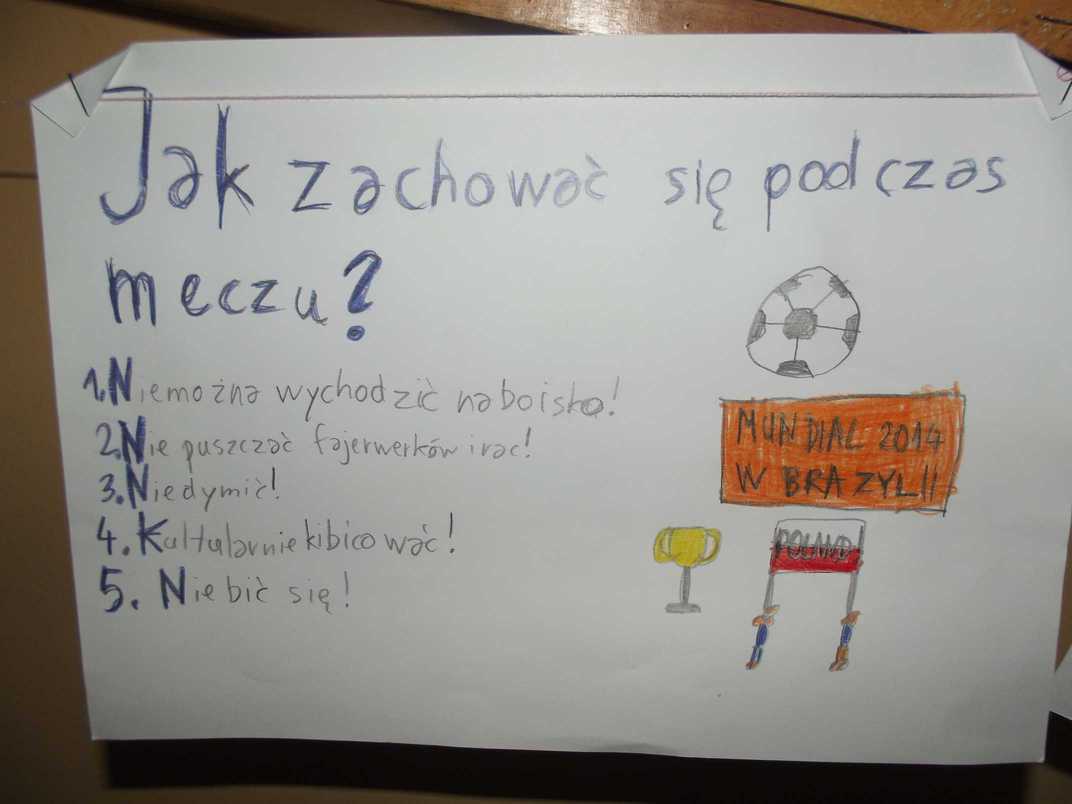 Jak zachować się podczas
meczu?
1. Niemożna wychodzić naboisko!
2. Nie puszczać fajerwerków i rac!
3. Niedymić!
4. Kultularnie kibicować!
5. Nie bić się!
MUNDIAL 2014
W BRAZYLII
POLAND